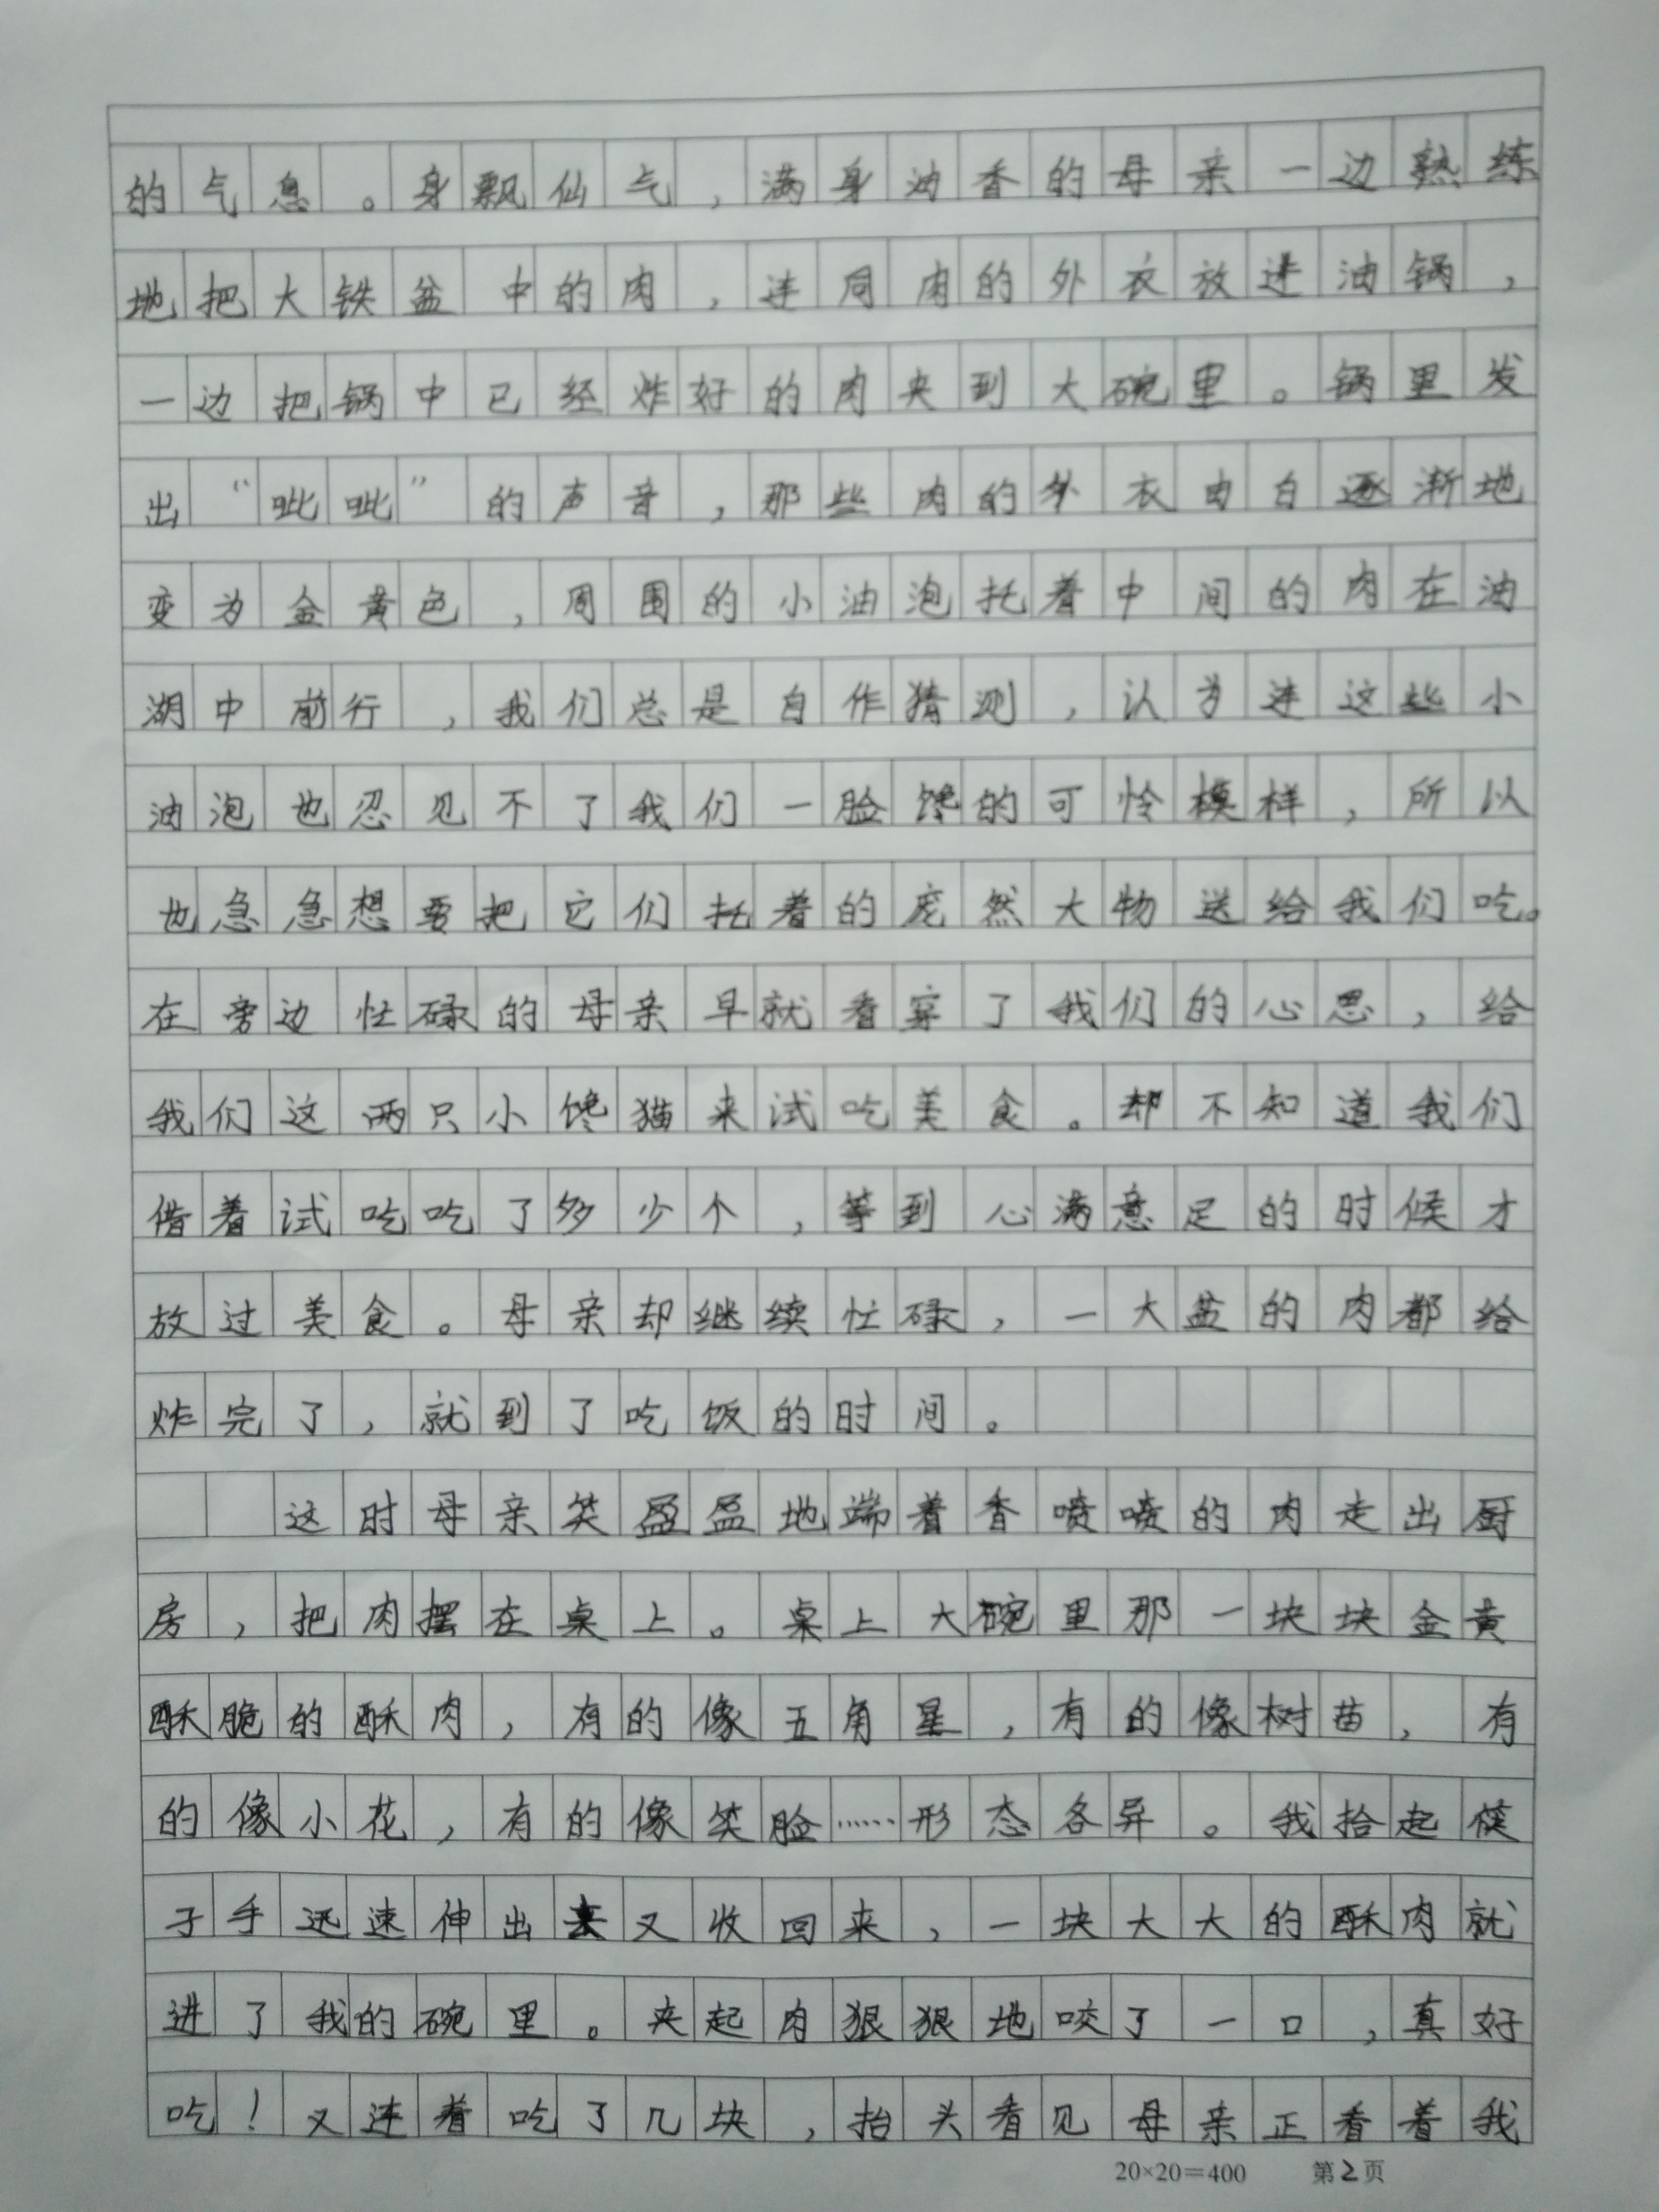 的气息。身飘仙气，满身油香的母亲一边熟练
地把大铁盆中的肉，连同肉的外衣放进油锅，
一边把锅中已经炸好的肉夹到大碗里。锅里发
出“呲呲”的声音，那些肉的外衣由白逐渐地
变为金黄色，周围的小油泡托着中间的肉在油
湖中前行，我们总是自作猜测，认为连这些小
油泡也忍见不了我们一脸馋的可怜模样，所以
也急急想要把它们托着的庞然大物送给我们吃。
在旁边忙碌的母亲早就看穿了我们的心思，给
我们这两只小馋猫来试吃美食。却不知道我们
借着试吃吃了多少个，等到心满意足的时候才
放过美食。母亲却继续忙碌，一大盆的肉都给
炸完了，就到了吃饭的时间。
这时母亲笑盈盈地端着香喷喷的肉走出厨
房，把肉摆在桌上。桌上大碗里那一块块金黄
酥脆的酥肉，有的像五角星，有的像树苗，有
的像小花，有的像笑脸……形态各异。我拾起筷
子手迅速伸出去又收回来，一块大大的酥肉就
进了我的碗里。夹起肉狠狠地咬了一口，真好
吃！又连着吃了几块，抬头看见母亲正看着我
20×20=400 第2页